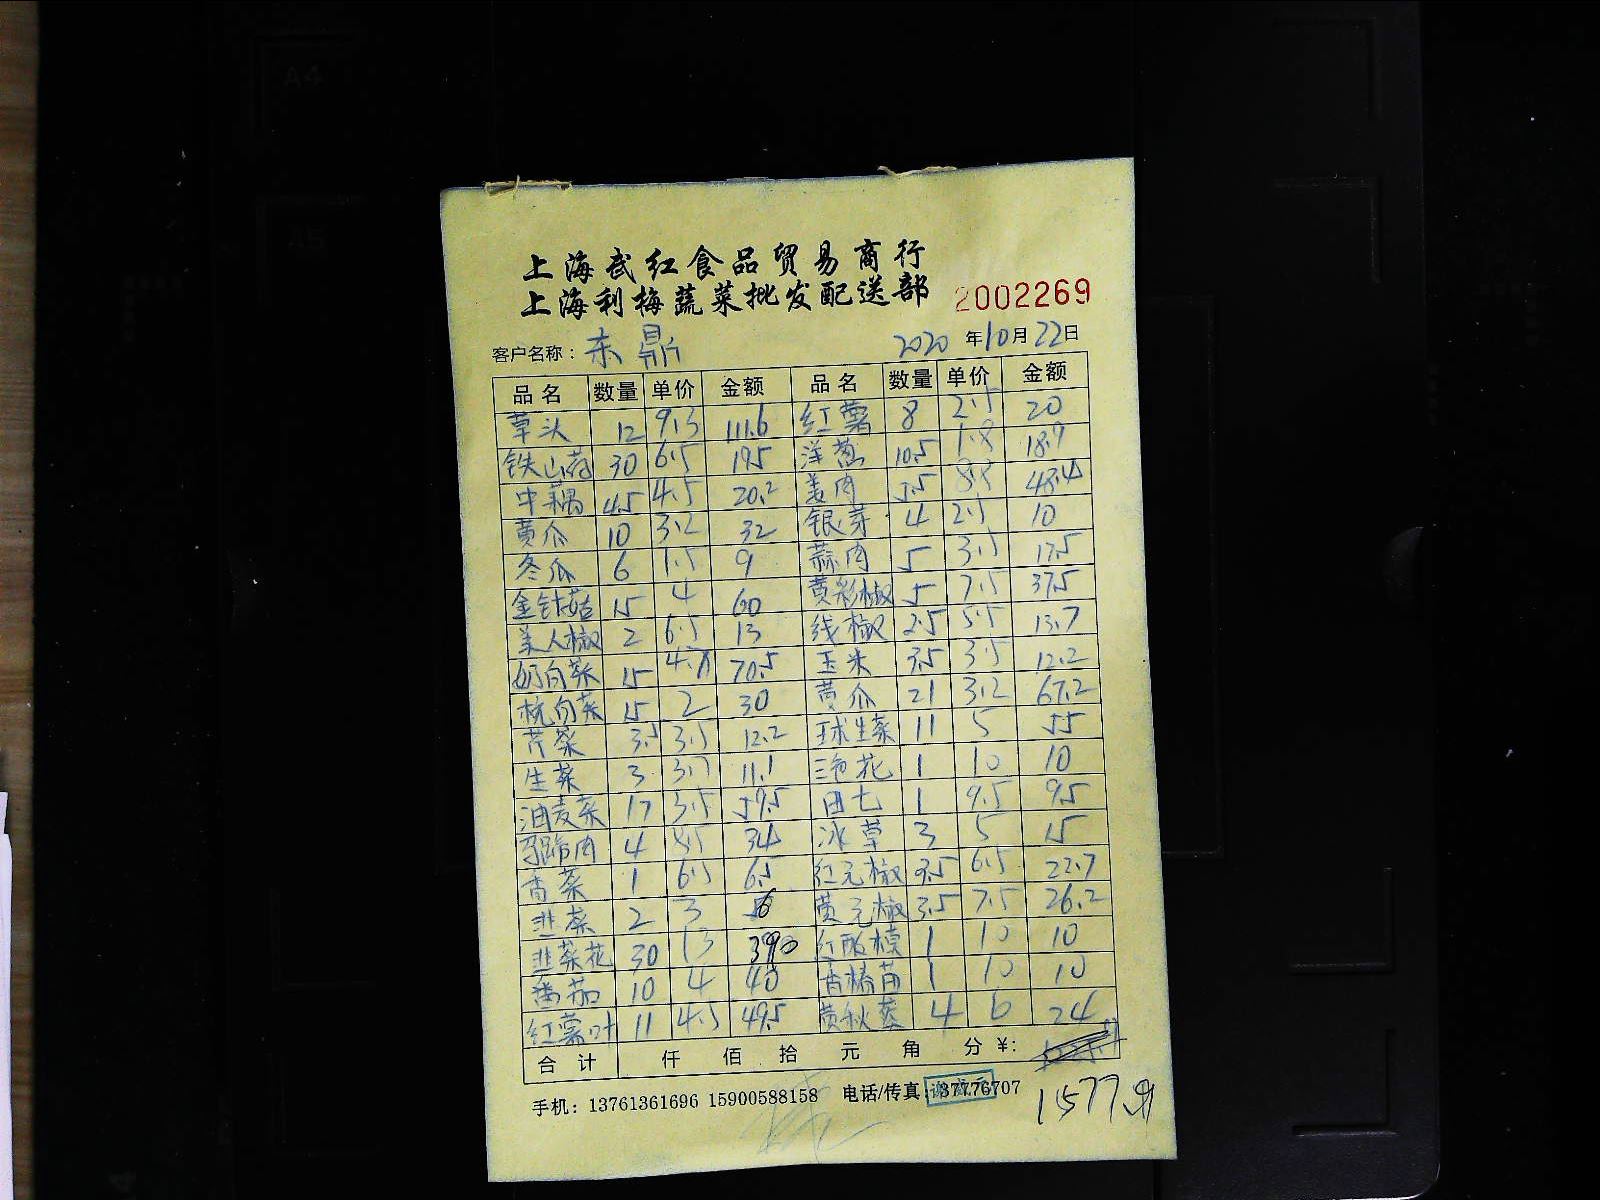 上海武红食品贸易商行
上海利梅蔬菜批发配送部 2002269
客户名称：东鼎 2020年10月22日
品名 数量 单价 金额 品名 数量 单价 金额
草头 12 9.3 111.6 红薯 8 2.5 20
铁山药 30 6.5 195 洋葱 10.5 1.8 18.9
中藕 4.5 4.5 20.2 姜肉 5.5 8.8 48.4
黄瓜 10 3.2 32 银芽 4 2.5 10
冬瓜 6 1.5 9 蒜肉 5 3.5 17.5
金针菇 15 4 60 黄彩椒 5 7.5 37.5
美人椒 2 6.5 13 线椒 2.5 5.5 13.7
奶白菜 15 4.7 70.5 玉米 3.5 3.5 12.2
杭白菜 15 2 30 黄瓜 21 3.2 67.2
芹菜 3.5 3.5 12.2 球生菜 11 5 55
生菜 3 3.7 11.1 三色花 1 10 10
油麦菜 17 3.5 59.5 田七 1 9.5 9.5
马蹄肉 4 8.5 34 冰草 3 5 15
香菜 1 6.5 6.5 红元椒 3.5 6.5 22.7
韭菜 2 3 6 黄元椒 3.5 7.5 26.2
韭菜花 30 13 390 红酸模 1 10 10
番茄 10 4 40 香椿苗 1 10 10
红薯叶 11 4.5 49.5 黄秋葵 4 6 24
合计 仟 佰 拾 元 角 分 ¥:
手机：13761361696 15900588158 电话/传真:37776707
1577.9